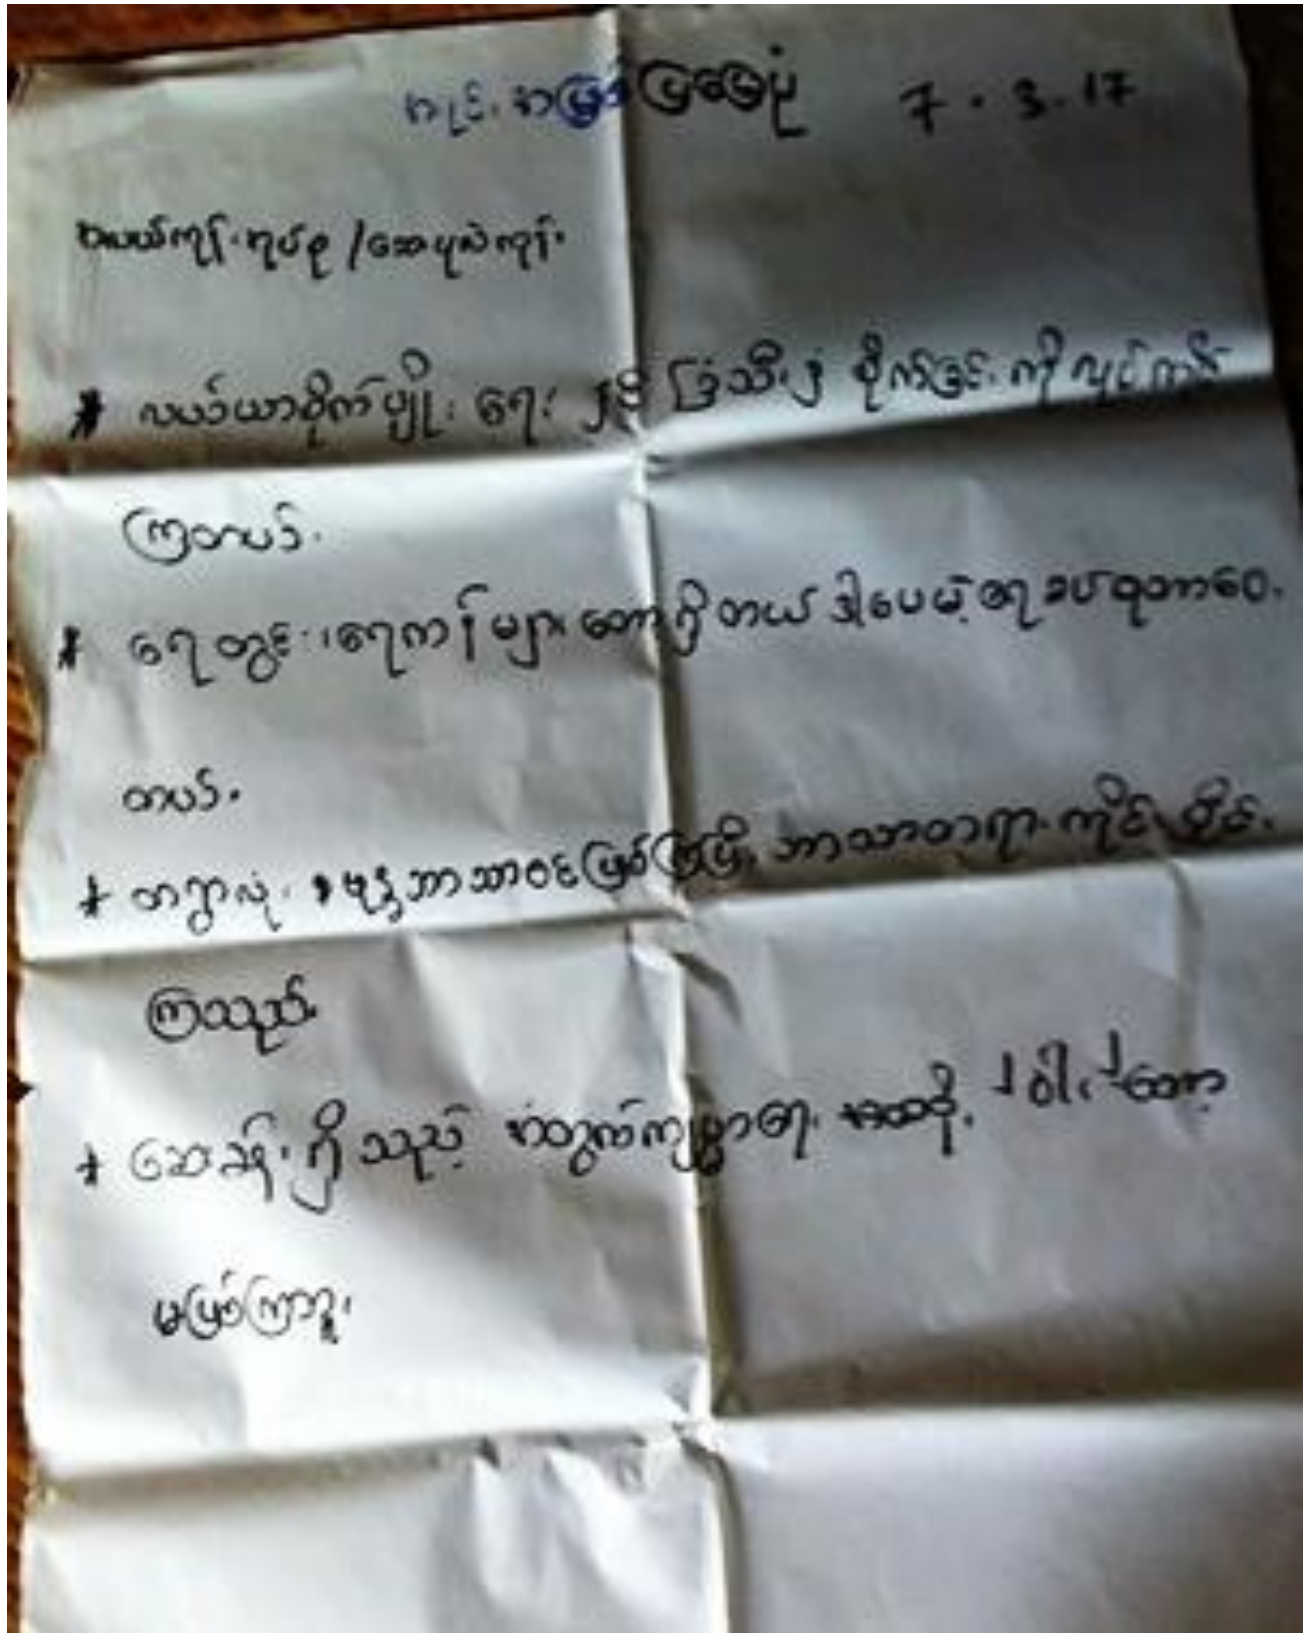 ကျင်းအမြစ်ပြမြေပုံ 7.3.17
အလယ်ကုန်းအုပ်စု / ဆေပုလဲကုန်း
* လယ်ယာစိုက်ပျိုးရေးနှင့် ခြံသီးနှံ စိုက်ခြင်းကို လုပ်ကိုင်
ကြတယ်။
* ရေတွင်း၊ ရေကန်များတော့ရှိတယ် ဒါပေမဲ့ ရေခပ်ရတာဝေး
တယ်။
* တရွာလုံး ဗုဒ္ဓဘာသာဝင်ဖြစ်ကြပြီး ဘာသာတရားကိုင်းရှိုင်း
ကြသည်။
* ဆေးခန်းရှိသည့် အတွက်ကျန်းမာရေး အထူး ပြဿနာတော့
မဖြစ်ကြဘူး။